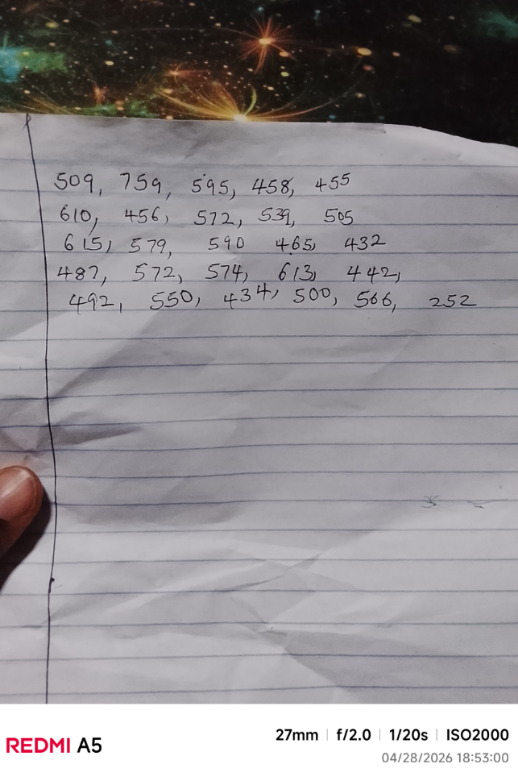 509, 759, 595, 458, 455
610, 456, 572, 539, 505
615, 579, 590 465, 432
487, 572, 574, 613, 442,
492, 550, 434, 500, 566, 252
REDMI A5
27mm | f/2.0 | 1/20s | ISO2000
04/28/2026 18:53:00